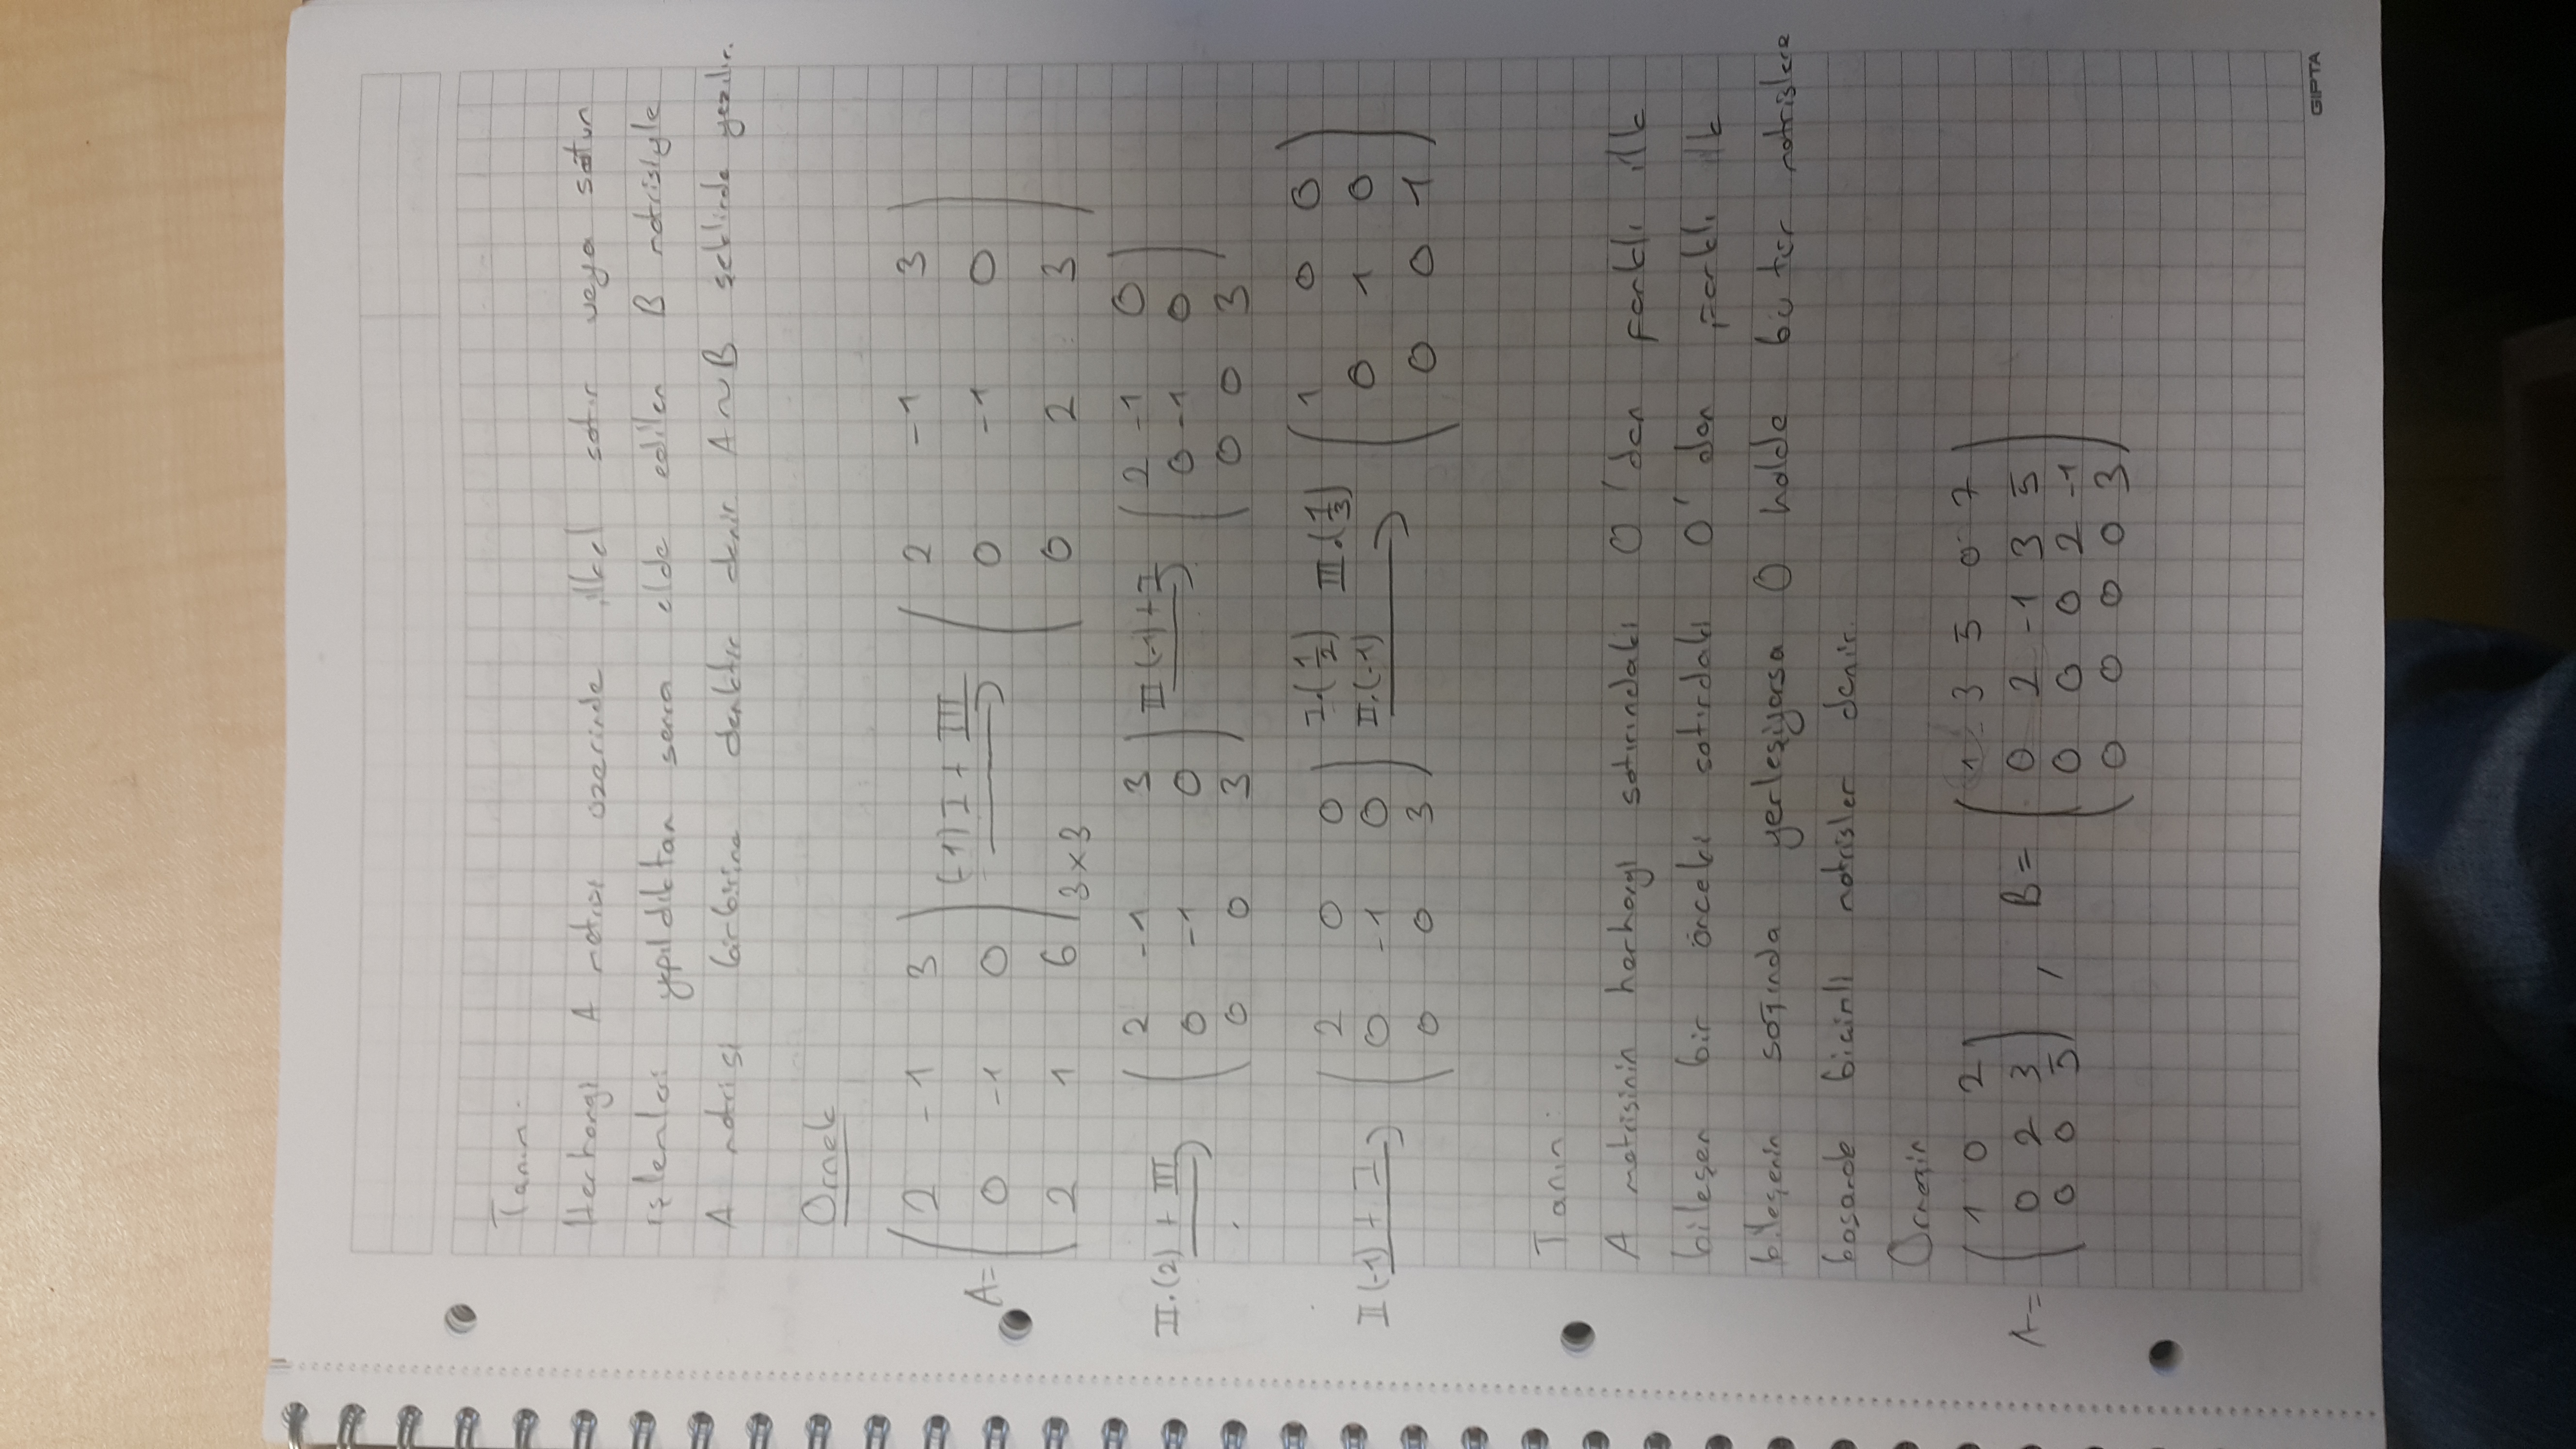 Tanım:
Herhangi A matrisi üzerinde ilkel satır veya sütun
işlemleri yapıldıktan sonra elde edilen B matrisiyle
A matrisi birbirine denktir denir A~B şeklinde yazılır.
Örnek
A= ( 2 -1 3 ) (-1)I + III ( 2 -1 3 )
( 0 -1 0 ) ( 0 -1 0 )
( 2 1 6 ) 3×3 ( 0 2 3 )
II.(2) + III ( 2 -1 3 ) III(-1)+I ( 2 -1 0 )
( 0 -1 0 ) ( 0 -1 0 )
( 0 0 3 ) ( 0 0 3 )
II(-1) + I ( 2 0 0 ) I.(1/2) III.(1/3) ( 1 0 0 )
( 0 -1 0 ) II.(-1) ( 0 1 0 )
( 0 0 3 ) ( 0 0 1 )
Tanım:
A matrisinin herhangi satırındaki 0'dan farklı ilk
bileşen bir önceki satırdaki 0'dan farklı ilk
bileşenin sağında yerleşiyorsa O halde bu tür matrislere
basamak biçimli matrisler denir.
Örneğin
A= ( 1 0 2 ) , B= ( 1 3 5 0 7 )
( 0 2 3 ) ( 0 2 -1 3 5 )
( 0 0 5 ) ( 0 0 0 2 -1 )
( 0 0 0 0 3 )
GIPTA